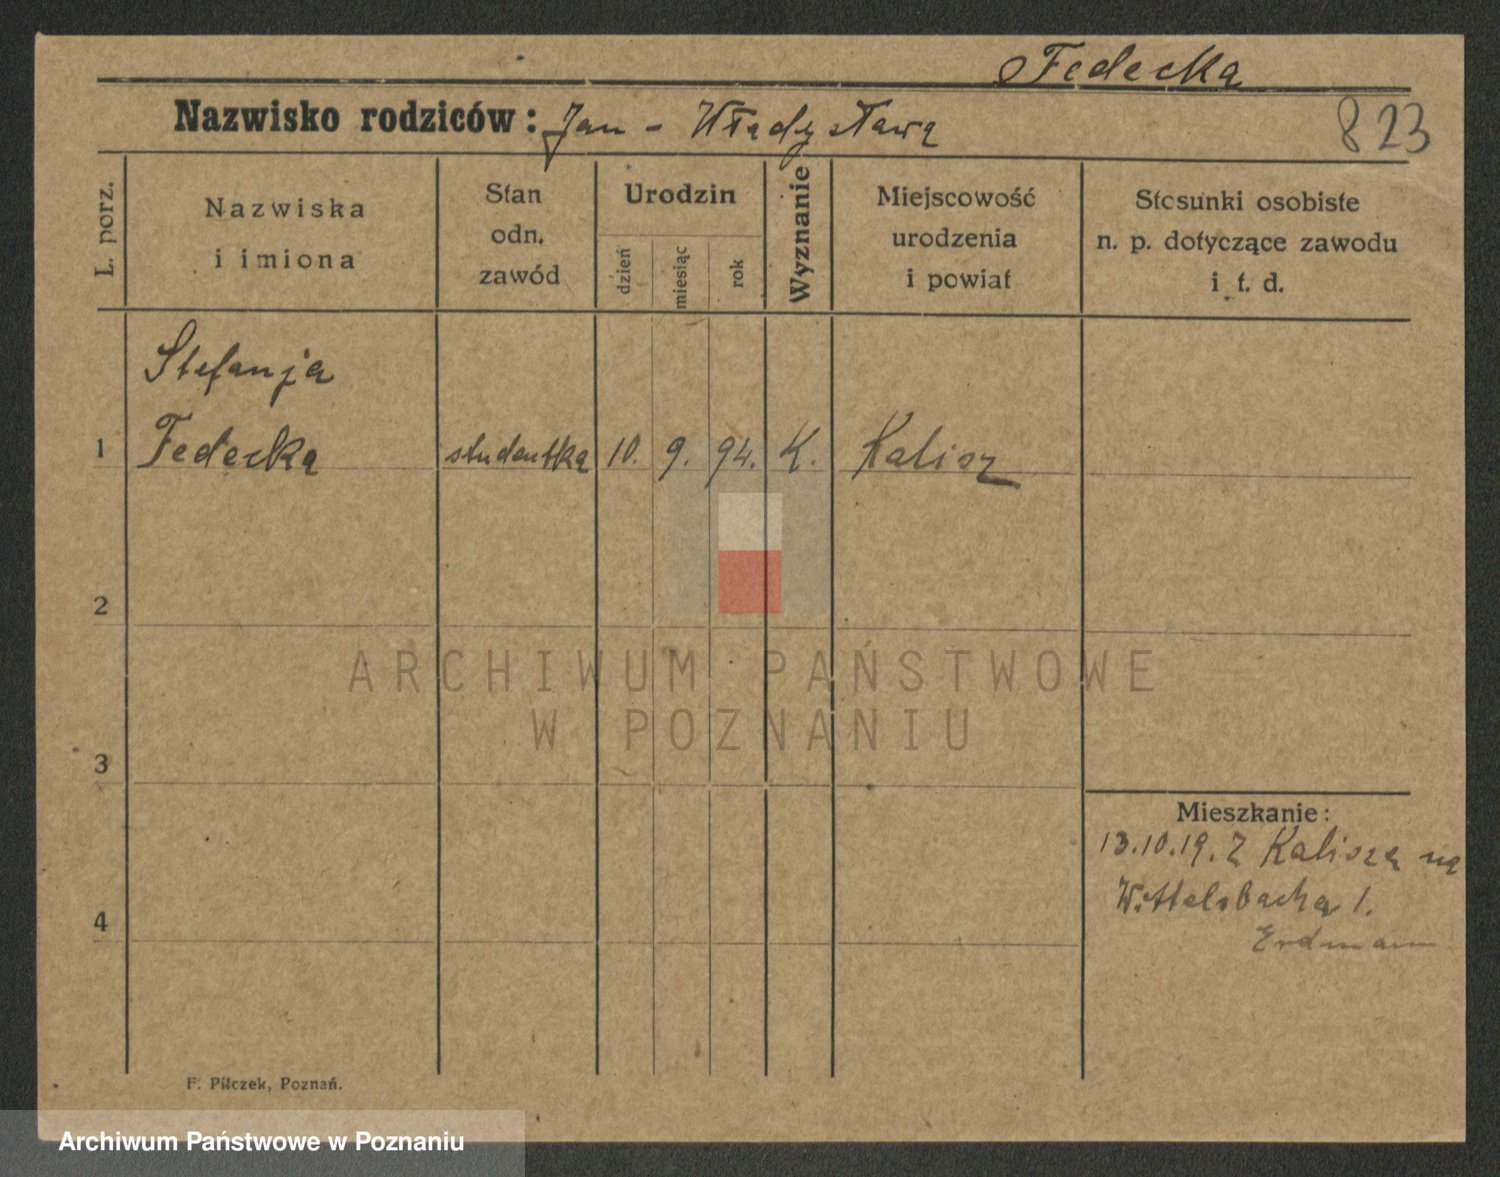 Fedecka
Nazwisko rodziców: Jan - Władysława
823
L. porz.
Nazwiska
i imiona
Stan
odn.
zawód
Urodzin
dzień
miesiąc
rok
Wyznanie
Miejscowość
urodzenia
i powiat
Stosunki osobiste
n. p. dotyczące zawodu
i t. d.
Stefanja
1 Fedecka studentka 10. 9. 94. K. Kalisz
2
ARCHIWUM PAŃSTWOWE
W POZNANIU
3
Mieszkanie:
13.10.19. Z Kalisza na
Wittelsbacha 1.
Erdmann
4
F. Pilczek, Poznań.
Archiwum Państwowe w Poznaniu